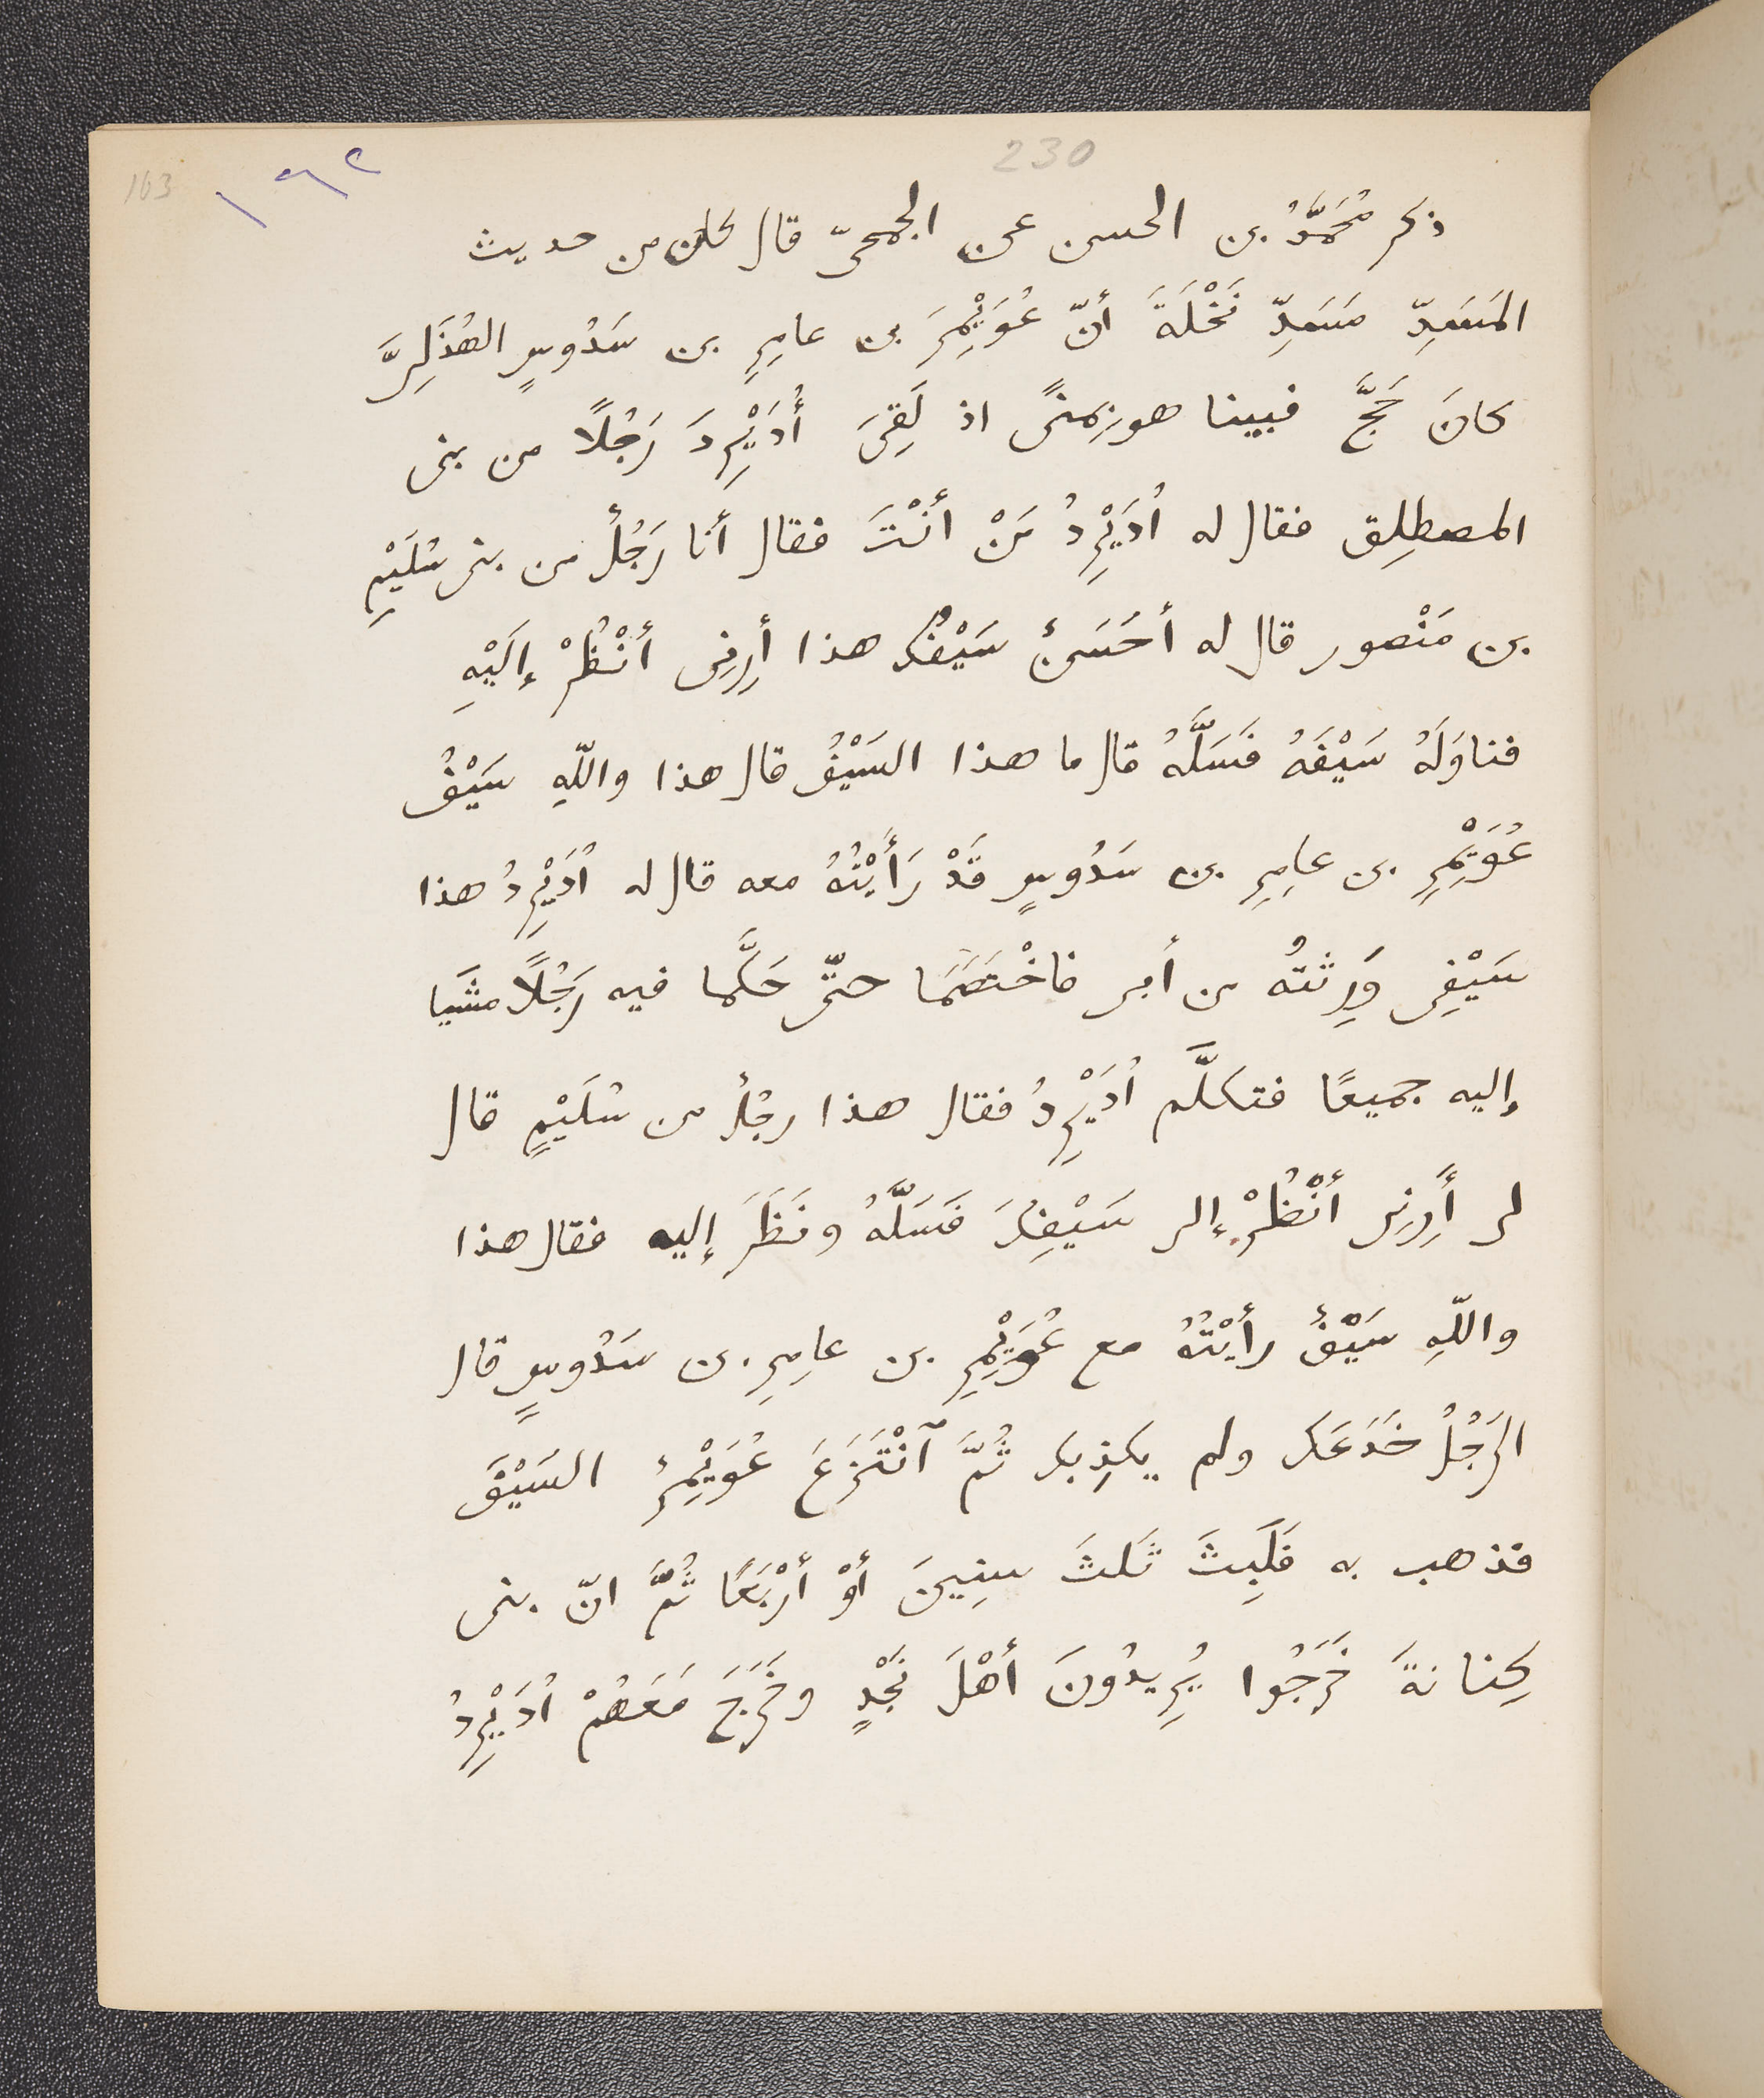 230
163
١٦٢
ذكر مُحَمَّدُ بن الحسن عن الجمحىّ قال كان من حديث
المَسَدِّ مَسَدِّ نَخْلَةَ أنّ عُوَيْمِرَ بن عامِرِ بن سَدُوسٍ الهُذَلِىَّ
كانَ حَجَّ فبينا هو بِمنًى اذ لَقِىَ أُدَيْرِدَ رَجُلًا من بنى
المصطلِق فقال له اُدَيْرِدُ مَنْ أنْتَ فقال أنا رَجُلٌ من بنى سُلَيْمِ
بن مَنْصور قال له أحَسَنٌ سَيْفُك هذا أَرِنِى أنْظُرْ إلَيْهِ
فناوَلَهُ سَيْفَهُ فَسَلَّهُ قال ما هذا السَيْفُ قال هذا واللّهِ سَيْفُ
عُوَيْمِرِ بن عامِرِ بن سَدُوسٍ قَدْ رَأَيْتُهُ معه قال له اُدَيْرِدُ هذا
سَيْفِى وَرِثتُه من أبى فاخْتَصَمَا حتّى حَكَّما فيه رَجُلًا مشَيا
إليه جميعًا فتكلَّم اُدَيْرِدُ فقال هذا رجُلٌ من سُلَيْمٍ قال
لى أَرِنِى أنْظُرْ إلى سَيْفِكَ فَسَلَّهُ ونَظَرَ إليه فقال هذا
واللّهِ سَيْفٌ رأيْتُهُ مع عُوَيْمِرِ بن عامِرِ بن سَدُوسٍ قال
الرَجُلُ خَدَعَك ولم يكذِبك ثُمَّ ٱنْتَزَعَ عُوَيْمِرٌ السَيْفَ
فذهب به فَلَبِثَ ثَلثَ سِنِينَ أوْ أرْبَعًا ثُمَّ انّ بنى
كِنانةَ خَرَجُوا يُرِيدُونَ أهْلَ نَجْدٍ وخَرَجَ مَعَهُمْ اُدَيْرِدُ